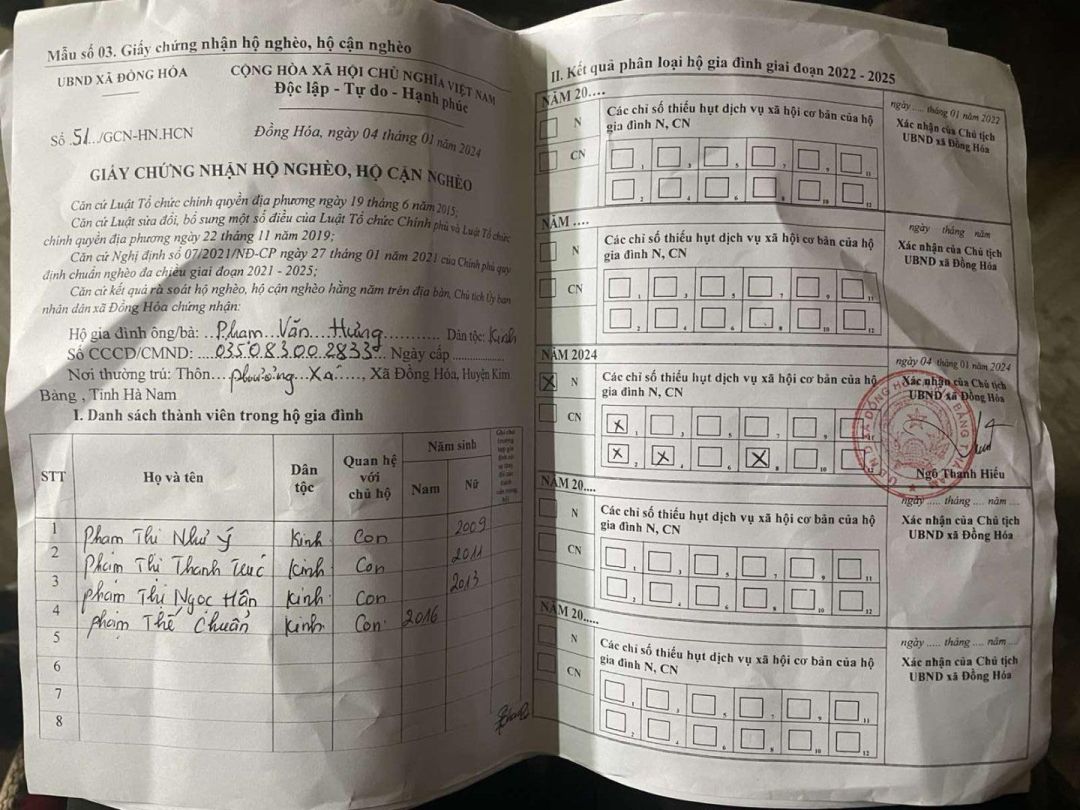 Mẫu số 03. Giấy chứng nhận hộ nghèo, hộ cận nghèo
UBND XÃ ĐỒNG HÓA
CỘNG HÒA XÃ HỘI CHỦ NGHĨA VIỆT NAM
Độc lập - Tự do - Hạnh phúc
Số .51.../GCN-HN.HCN
Đồng Hóa, ngày 04 tháng 01 năm 2024
GIẤY CHỨNG NHẬN HỘ NGHÈO, HỘ CẬN NGHÈO
Căn cứ Luật Tổ chức chính quyền địa phương ngày 19 tháng 6 năm 2015;
Căn cứ Luật sửa đổi, bổ sung một số điều của Luật Tổ chức Chính phủ và Luật Tổ chức
chính quyền địa phương ngày 22 tháng 11 năm 2019;
Căn cứ Nghị định số 07/2021/NĐ-CP ngày 27 tháng 01 năm 2021 của Chính phủ quy
định chuẩn nghèo đa chiều giai đoạn 2021 - 2025;
Căn cứ kết quả rà soát hộ nghèo, hộ cận nghèo hằng năm trên địa bàn, Chủ tịch Ủy ban
nhân dân xã Đồng Hóa chứng nhận:
Hộ gia đình ông/bà: ...Phạm...Văn...Hưng............ Dân tộc: Kinh
Số CCCD/CMND: ....035083002833... Ngày cấp ................
Nơi thường trú: Thôn...Phương Xá...., Xã Đồng Hóa, Huyện Kim
Bảng , Tỉnh Hà Nam
I. Danh sách thành viên trong hộ gia đình
STT
Họ và tên
Dân tộc
Quan hệ với chủ hộ
Năm sinh
Nam
Nữ
1 Phạm Thị Như Ý Kinh Con 2009
2 Phạm Thị Thanh Trúc Kinh Con 2011
3 Phạm Thị Ngọc Hân Kinh Con 2013
4 Phạm Thế Chuẩn Kinh Con 2016
5
6
7
8
II. Kết quả phân loại hộ gia đình giai đoạn 2022 - 2025
NĂM 20....
N
CN
Các chỉ số thiếu hụt dịch vụ xã hội cơ bản của hộ
gia đình N, CN
1 3 5 7 9 11
2 4 6 8 10 12
ngày ..... tháng 01 năm 2022
Xác nhận của Chủ tịch
UBND xã Đồng Hóa
NĂM ....
N
CN
Các chỉ số thiếu hụt dịch vụ xã hội cơ bản của hộ
gia đình N, CN
1 3 5 7 9 11
2 4 6 8 10 12
ngày tháng năm
Xác nhận của Chủ tịch
UBND xã Đồng Hóa
NĂM 2024
X N
CN
Các chỉ số thiếu hụt dịch vụ xã hội cơ bản của hộ
gia đình N, CN
X 1 3 5 7 9 11
X 2 X 4 6 X 8 10
ngày 04 tháng 01 năm 2024
Xác nhận của Chủ tịch
UBND xã Đồng Hóa
Ngô Thanh Hiếu
NĂM 20....
N
CN
Các chỉ số thiếu hụt dịch vụ xã hội cơ bản của hộ
gia đình N, CN
1 3 5 7 9 11
2 4 6 8 10 12
ngày ..... tháng .... năm ....
Xác nhận của Chủ tịch
UBND xã Đồng Hóa
NĂM 20....
N
CN
Các chỉ số thiếu hụt dịch vụ xã hội cơ bản của hộ
gia đình N, CN
1 3 5 7 9 11
2 4 6 8 10 12
ngày ..... tháng .... năm ....
Xác nhận của Chủ tịch
UBND xã Đồng Hóa